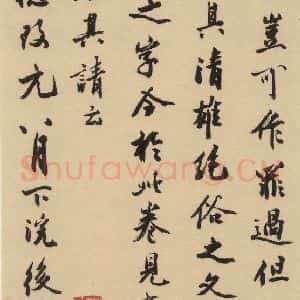 豈可作罪過但
具清雄絕俗之文
之字今於此卷見
其請云
改元八月下浣後
Shufawang.CN